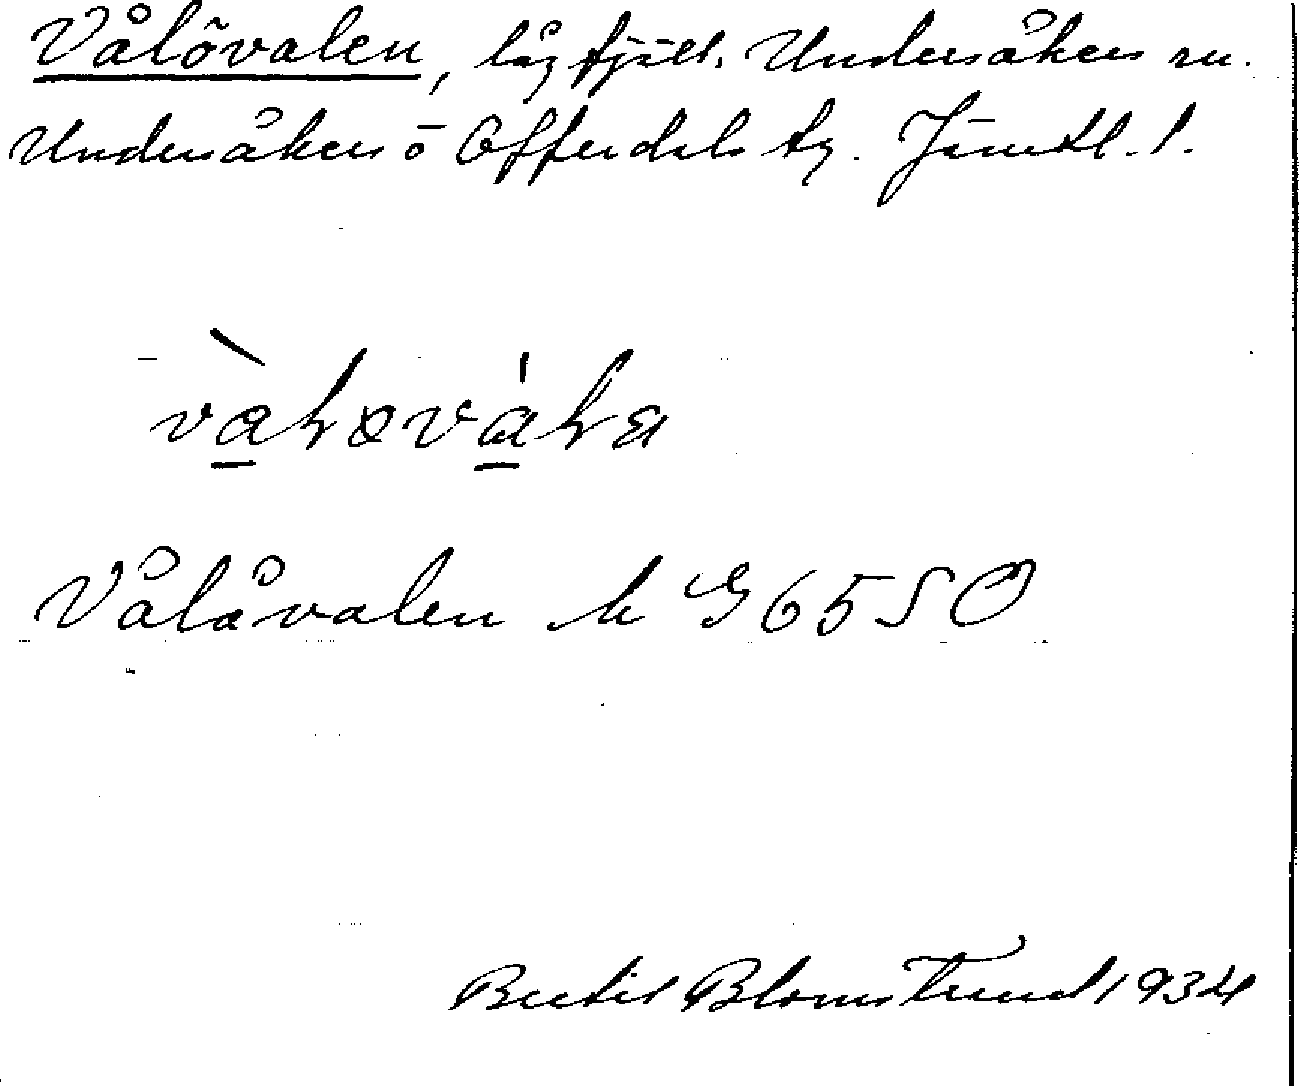 Vålövalen, lågfjäll. Undersåkers sn.
Undersåkers o Offerdals tg. Jämtl. l.
Vålåvalen k G 65 SO
Bertil Blomstrand 1934